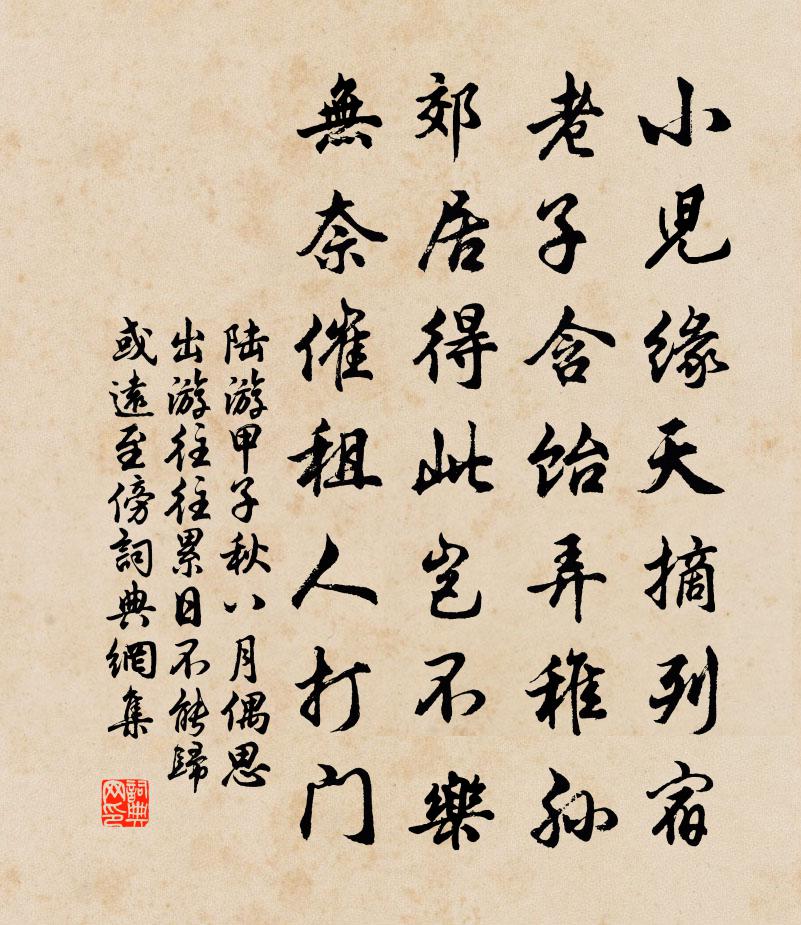 小兒緣天摘列宿
老子含飴弄稚孫
郊居得此豈不樂
無奈催租人打門
陆游甲子秋八月偶思
出游往往累日不能歸
或遠至傍詞典網集
詞典
网印